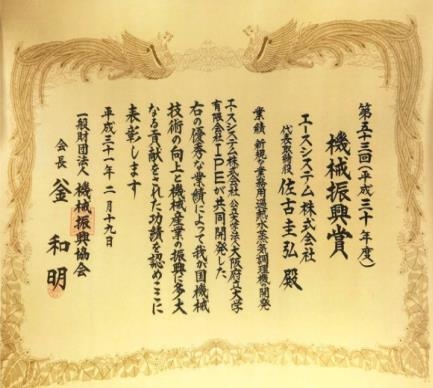 第五十三回(平成三十年度)
機械振興賞
エースシステム株式会社
代表取締役 佐古圭弘 殿
業績 新規な業務用過熱水蒸気調理機の開発
エースシステム株式会社 公立大学法人大阪府立大学
有限会社IPEが共同開発した
右の優秀な業績によって我が国機械
技術の向上と機械産業の振興に多大
なる貢献をされた功績を認めここに
表彰します
平成三十一年 二月十九日
一般財団法人 機械振興協会
会長 釜 和明